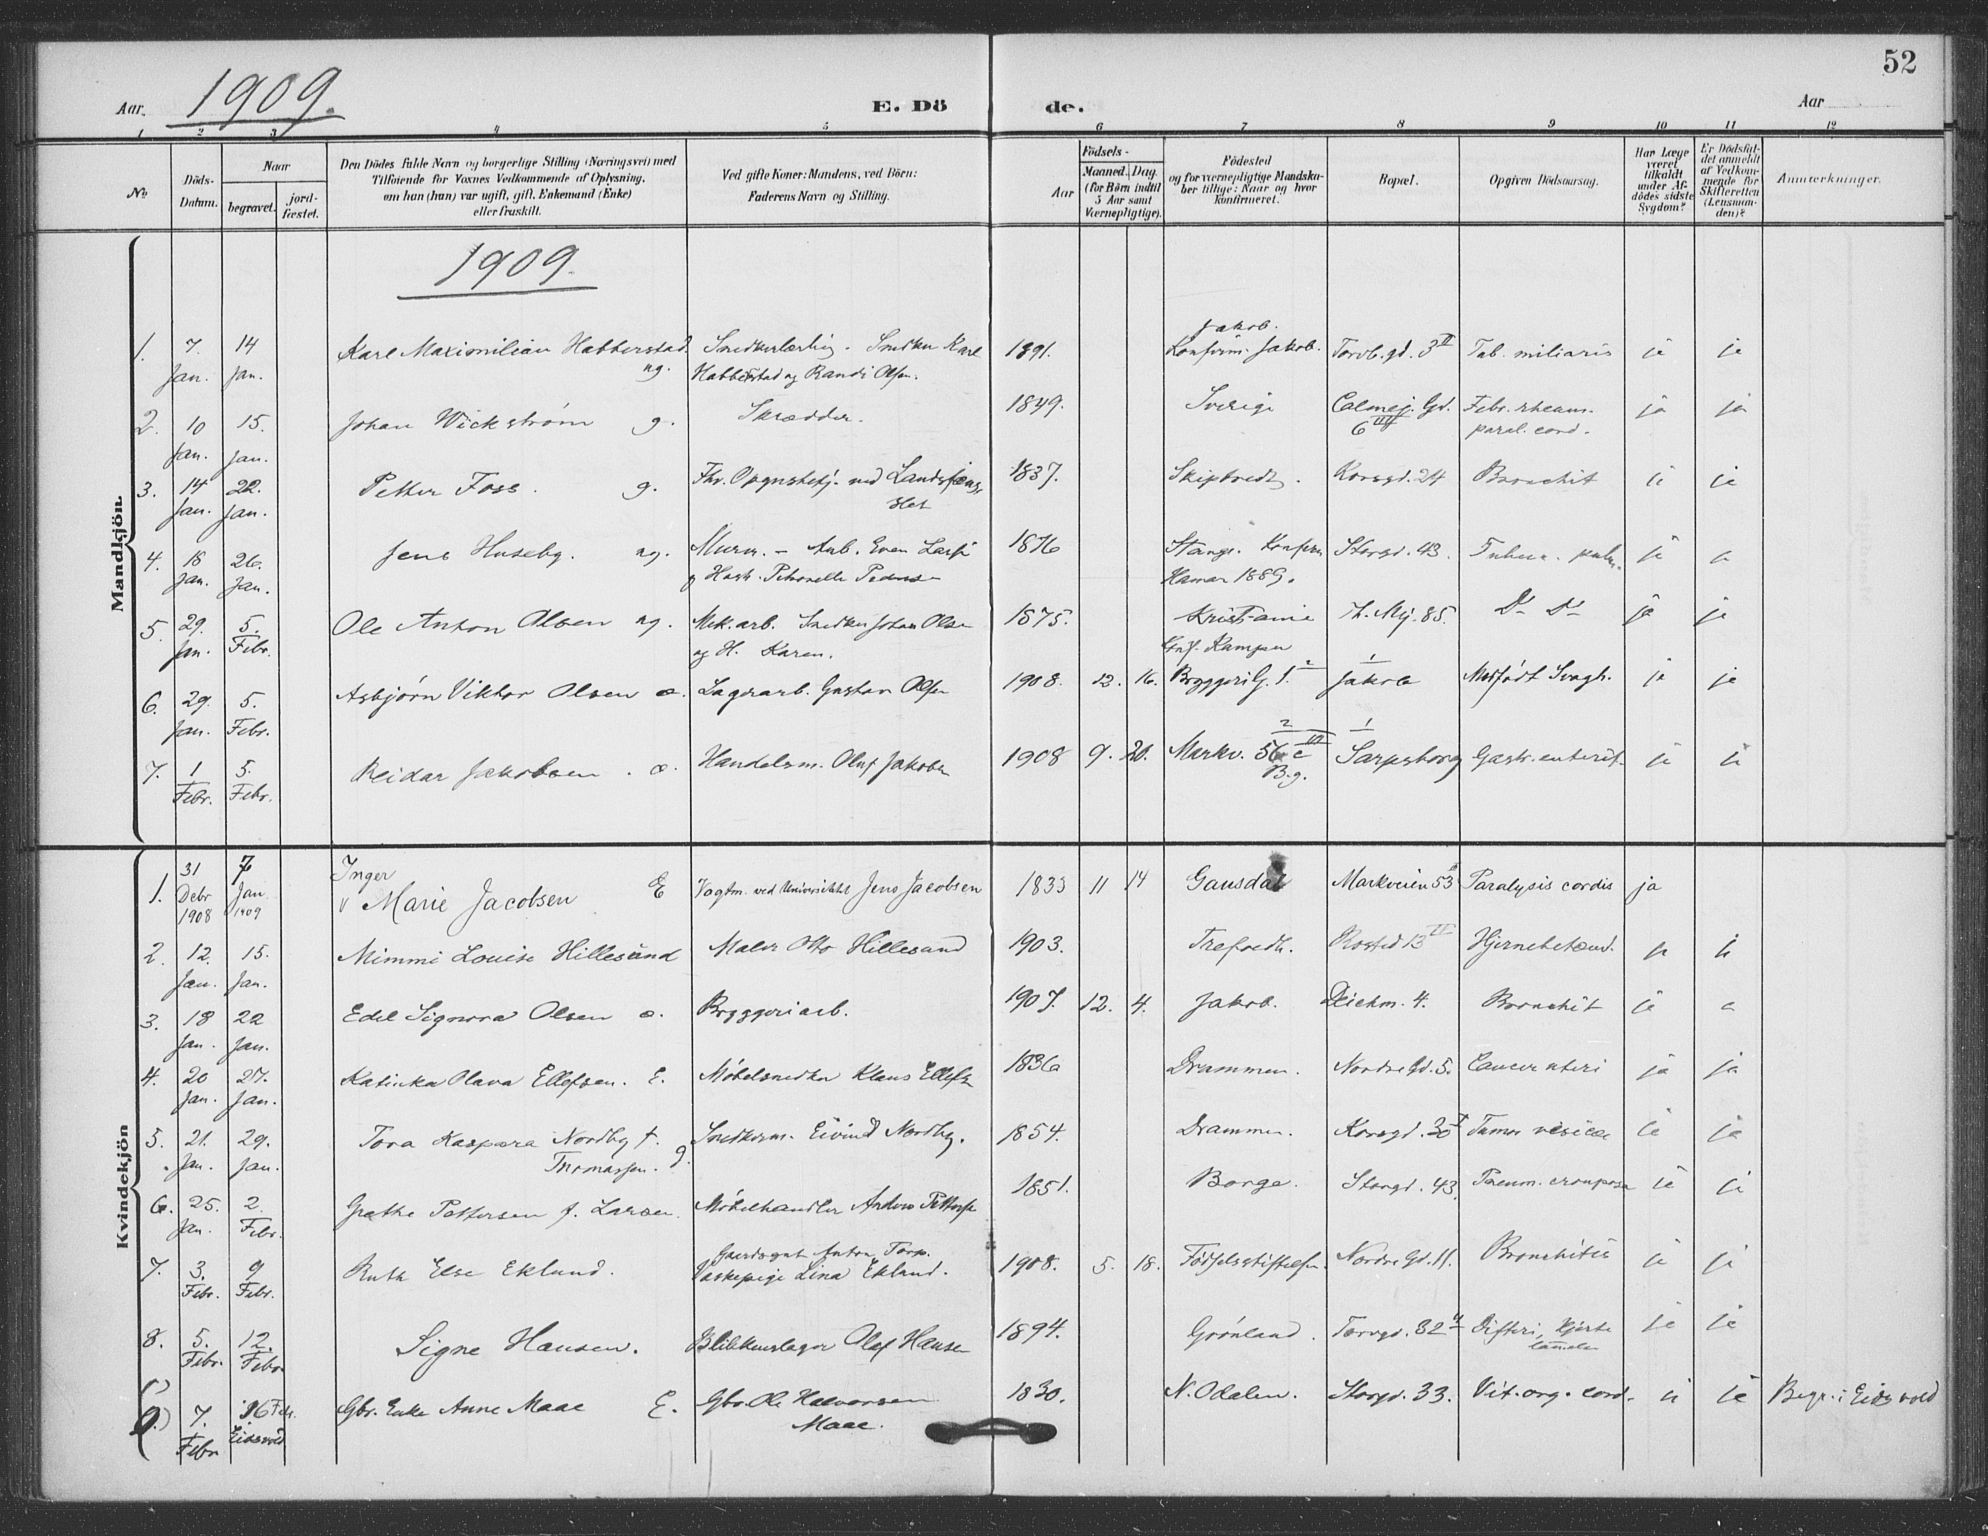 52
Aar. 1909. E. Dö de. Aar
1 2 3 4 5 6 7 8 9 10 11 12
No.
Döds-
Datum.
Naar
begravet.
jord-
fæstet.
Den Dödes fulde Navn og borgerlige Stilling (Næringsvei) med
Tilföiende for Voxnes Vedkommende af Oplysning,
om han (hun) var ugift, gift, Enkemand (Enke)
eller fraskilt.
Ved gifte Koner: Mandens, ved Börn:
Faderens Navn og Stilling.
Födsels-
Aar
Maaned. Dag.
(for Börn indtil
5 Aar samt
Værnepligtige).
Födested
og for værnepligtige Mandska-
ber tillige: Naar og hvor
konfirmeret.
Bopæl.
Opgiven Dödsaarsag.
Har Læge
været
tilkaldt
under Af-
dödes sidste
Sygdom?
Er Dödsfal-
det anmeldt
af Vedkom-
mende for
Skifteretten
(Lensman-
den)?
Anmærkninger.
Mandkjön.
1909.
1. 7. Jan. 14 Jan. Karl Maximilian Habberstad ug. Snedkerlærling. Snedker Karl
Habberstad og Randi Olsen. 1891. Jakob.
Konfirm. Jakob. Torvb.gd. 3 II Tub. miliaris ja ja
2. 10 Jan. 15. Jan. Johan Wickström g. Skrædder. 1849. Sverige Calmej. Gd. 6 III Febr. rheum.
paral. cord. ja ja
3. 14 Jan. 22. Jan. Petter Foss. g. Fhv. Opsynsbetj. ved Landsfængs
let 1837. Skiptvedt. Korsgd. 24 Bronchit ja
4. Jan. 26. Jan. Jens Huseby. ug. Murm. - Arb. Even Larse
og Hust. Petronelle Peders 1876 Stange. Konfirm
Hamar 1889. Storgd. 43. pulm.
5. 29. Jan. 5. Febr. Ole Anton Olsen ug. Mek. arb. Snedker Johan Olse
og H. Karen. 1875. Kristiania
Konf. Kampen Th. Mej. 85. Do Do ja ja
6. 29. Jan. 5. Febr. Asbjörn Viktor Olsen æ. Lagerarb. Gustav Olsen 1908. 12. 16. Bryggerig. 1. 2 Jakob 1 Medfödt Svagh. ja ja
7. 1 Febr. 5. Febr. Reidar Jakobsen. æ. Handelsm. Oluf Jakobsen 1908 9. 20. Markv. 56 c III
B.g. 2 Sarpsborg 1 Gastr. enterit.
Kvindekjön
1. 31 Debr 1908 7 Jan 1909 Inger
Marie Jacobsen E Vagtm. ved Universitetet Jens Jacobsen 1833 11 14 Gausdal Markveien 53 Paralysis cordis ja
2. 12. Jan. 15. Jan. Mimmi Louise Hillesund Maler Otto Hillesund 1903. Trefoedh. Rosted 13 II Hjernebetænd.
3. 18 Jan. 22 Jan. Edel Signora Olsen æ. Bryggeriarb. 1907. 12. 4. Jakob. Deichm. 4. Bronchit ja
4. 20 Jan. 27. Jan. Katinka Olava Ellefsen. E. Möbelsnedker Klaus Ellefs 1836 Drammen. Nordre Gd. 5. Cancer uteri ja ja
5. 21. Jan. 29. Jan. Tora Kaspara Nordby f.
Thomassen. g. Snedkerm. Eivind Nordby. 1854. Drammen. Korsgd. 30 I Tumor vesicae ja ja
6. 25. Jan. 2. Febr. Grethe Pettersen f. Larsen. Möbelhandler Anders Petterse 1851. Borge. Storgd. 43. Pneum. crouposa ja
7. 3. Febr. 9 Febr. Ruth Else Eklund. Gaardsgut Anton Torp.
Vaskepige Lina Eklund. 1908. 5. 18. Födselsstiftelsen Nordre Gd. 11. Bronchitis ja
8. 5. Febr. 12. Febr. Signe Hansen. Blikkenslager Olaf Hansen 1894. Grönland. Torvgd. 32 Difteri, Hjerte
lammelse ja ja
9.) 7. Febr 16 Feb. Eidsvold Gbr. Enke Anne Maae E. Gbr. Ole Halvorsen
Maae. 1830. N. Odalen. Storgd. 33. Vit. org. cord. ja Begr. i Eidsvold